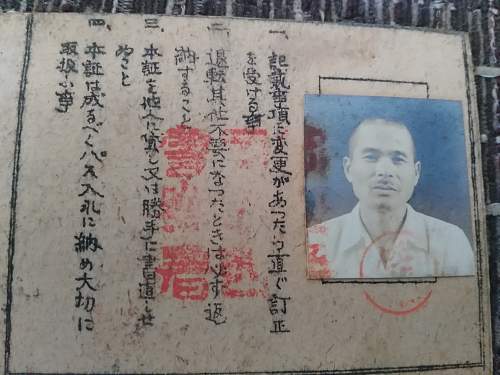 一、記載事項に変更があつたら直ぐ訂正
を受ける事
二、退転其他不要になつたときは必ず返
納すること
三、本証を他人に貸し又は勝手に書直しせ
ぬこと
四、本証は成るべくパス入れに納め大切に
取扱ふ事